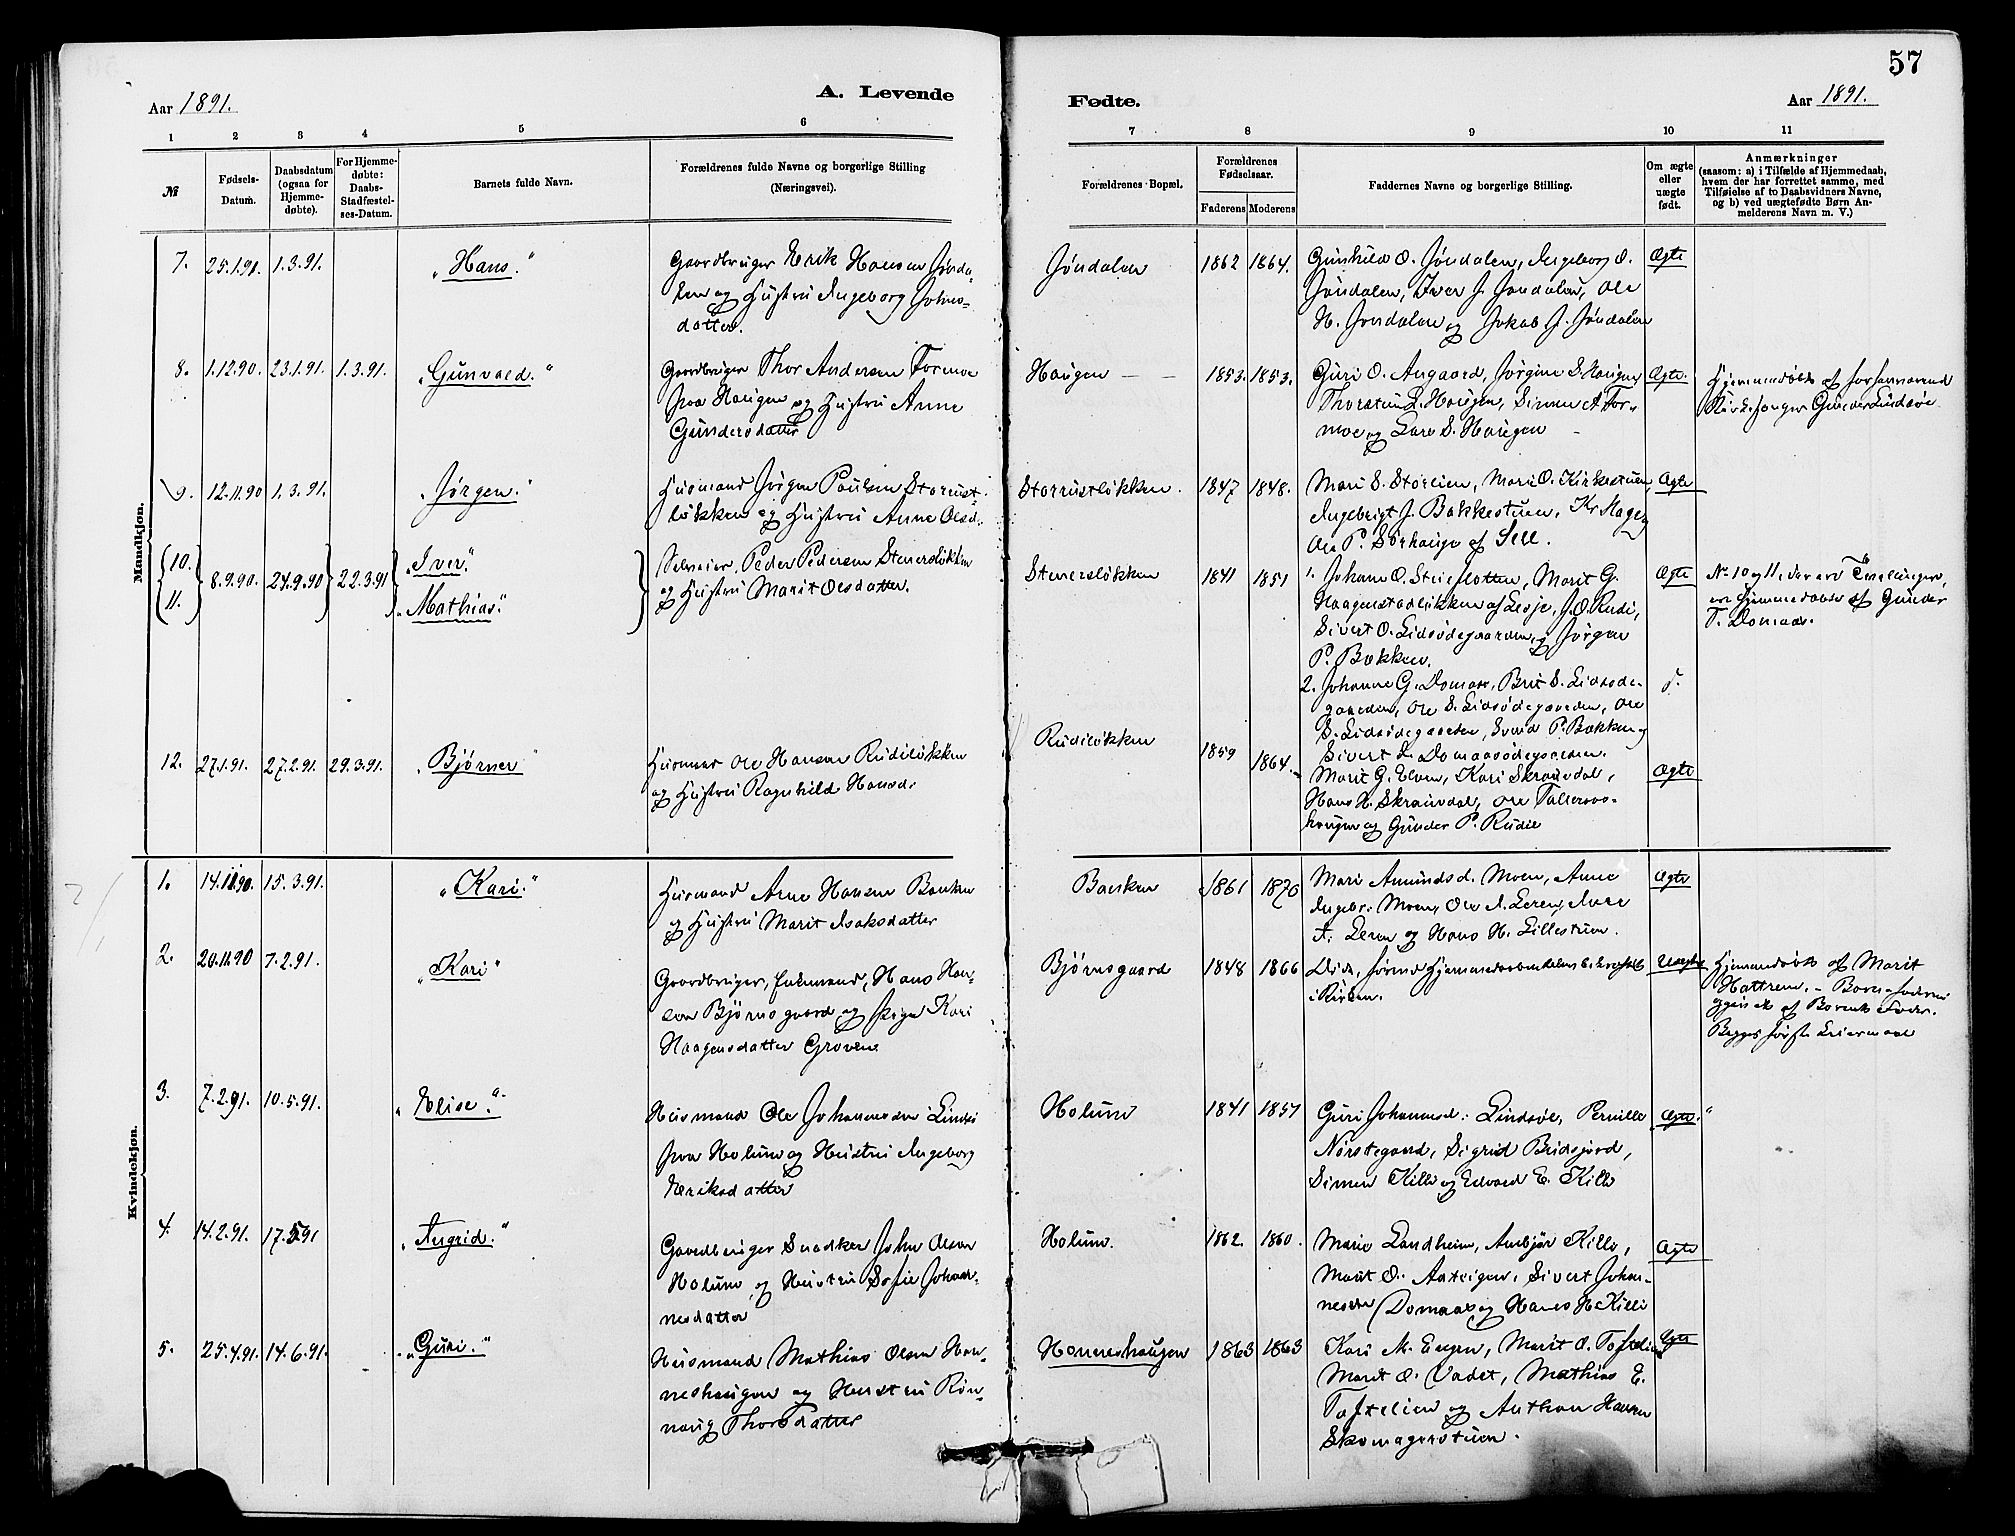 57
Aar 1891.
A. Levende
Fødte.
Aar 1891.
1 2 3 4 5 6 7 8 9 10 11
№
Fødsels-
Datum.
Daabsdatum
(ogsaa for
Hjemme-
døbte).
For Hjemme-
døbte:
Daabs-
Stadfæstel-
ses-Datum.
Barnets fulde Navn.
Forældrenes fulde Navne og borgerlige Stilling
(Næringsvei).
Forældrenes Bopæl.
Forældrenes
Fødselsaar.
Faderens Moderens
Faddernes Navne og borgerlige Stilling.
Om ægte
eller
uægte
født.
Anmærkninger
(saasom: a) i Tilfælde af Hjemmedaab,
hvem der har forrettet samme, med
Tilføielse af to Daabsvidners Navne,
og b) ved uægtefødte Børn An-
melderens Navn m. V.)
Mandkjøn.
7. 25.1.91. 1.3.91. „Hans."
Gaardbruger Erik Hansen Jönda-
len og Hustru Ingeborg Johns-
datter.
Jöndalen 1862 1864.
Gunhild O. Jöndalen, Ingeborg O.
Jöndalen, Iver J. Jöndalen, Ole
H. Jöndalen og Jakob J. Jöndalen
Ægte
8. 1.12.90. 23.1.91. 1.3.91. „Gunvald."
Gaardbruger Thor Andersen Formoe
paa Haugen og Hustru Anne
Gundersdatter
Haugen 1853. 1853.
Guri O. Angaard, Jörgine S. Haugen
Thorstein L. Haugen, Simen A. For-
moe og Lars S. Haugen
Ægte.
Hjemmedöbt af forhenværende
Kirkesanger Gunder Lindsöe.
9. 12.11.90 1.3.91. „Jørgen."
Husmand Jörgen Paulsen Storust-
lökken og Hustru Anne Olsd.
Storrustlökken. 1847 1848.
Mari S. Storlien, Mari O. Kirkestuen,
Ingebrigt J. Bakkestuen, Kr Hage og
Ole P. Sörhauge af Sell.
Ægte
10.
11. 8.9.90. 24.9.90 22.3.91 „Iver."
„Mathias."
Selveier Peder Pedersen Stenerslökken
og Hustru Marit Olsdatter.
Stenerslökken 1841 1851
1. Johane O. Steieflotten, Marit G.
Haagenstadlökken af Lesje, J. O. Rudi,
Sivert O. Lidsödegaarden, og Jörgen
P. Bakken.
2. Johanne G. Domaas, Brit S. Lidsöde-
gaarden, Ole S. Lidsödegaarden, Ole
S. Lidsödegaarden, Svend P. Bakken og
Sivert L. Domaasödegaarden.
Ægte
No 10 og 11, der ere Tvillinger,
ere hjemmedöbte af Gunder
T. Domaas.
12. 27.1.91. 27.2.91. 29.3.91. „Bjørner"
Husmand Ole Hansen Rudilökken
og Hustru Ragnhild Hansd.
Rudilökken 1859 1864.
Marit G. Elven, Kari Skramdal,
Hans H. Skramdal, Ole Talleraas-
haugen og Gunder P. Rudie
Ægte
Kvindekjøn.
1. 14.11.90. 15.3.91. „Kari."
Husmand Arne Hansen Bakken
og Hustru Marit Isaksdatter
Bakken 1861 1870
Mari Amundsd. Moen, Anne
Ingebr: Moen, Ole A. Leren, Iver
A. Leren og Hans H. Lillestuen.
Ægte
2. 20.11.90 7.2.91. „Kari"
Gaardbruger, Enkemand, Hans Han-
sen Björnsgaard og Pige Kari
Haagensdatter Grovene
Björnsgaard 1848 1866
Död, förend Hjemmedaaben kunde bekræftes
i Kirken.
Uægte
Hjemmedöbt af Marit
Hattrem. – Barnefaderen
opgivet af Barnets Fader.
Begges förste Leiermaal
3. 7.2.91. 10.5.91. „Elise."
Husmand Ole Johannesen Lindsö
paa Holum og Hustru Ingeborg
Eriksdatter
Holum 1841 1851
Guri Johannesd: Lindsöe, Pernille
Nörstegaard, Sigrid Bridsjord,
Simen Kille og Edvard E. Kille
Ægte.
4. 14.2.91. 17.5.91 „Angrid."
Gaardbruger Snedker John Olsen
Holum og Hustru Sofie Johan-
nesdatter
Holum. 1862. 1860.
Marie Landheim, Anbjör Kille,
Marit O. Aateigen, Sivert Johan-
nesen Domaas og Hans H. Killi
Ægte
5. 25.4.91. 14.6.91. „Guri."
Husmand Mathias Olsen Han-
neshaugen og Hustru Rön-
naug Thorsdatter
Hanneshaugen 1863 1863
Kari M. Engen, Marit O. Toftelien
Marit O. Vadet, Mathias E.
Toftelien og Anthon Hansen
Skomagerstuen.
Ægte